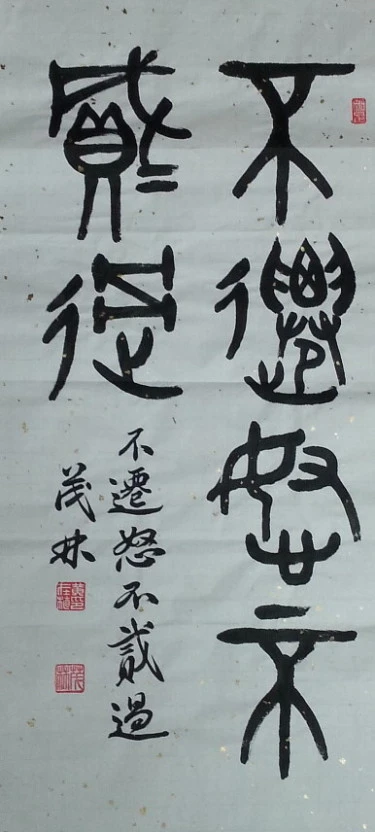 不遷怒不
貳過
不遷怒不貳過
茂林